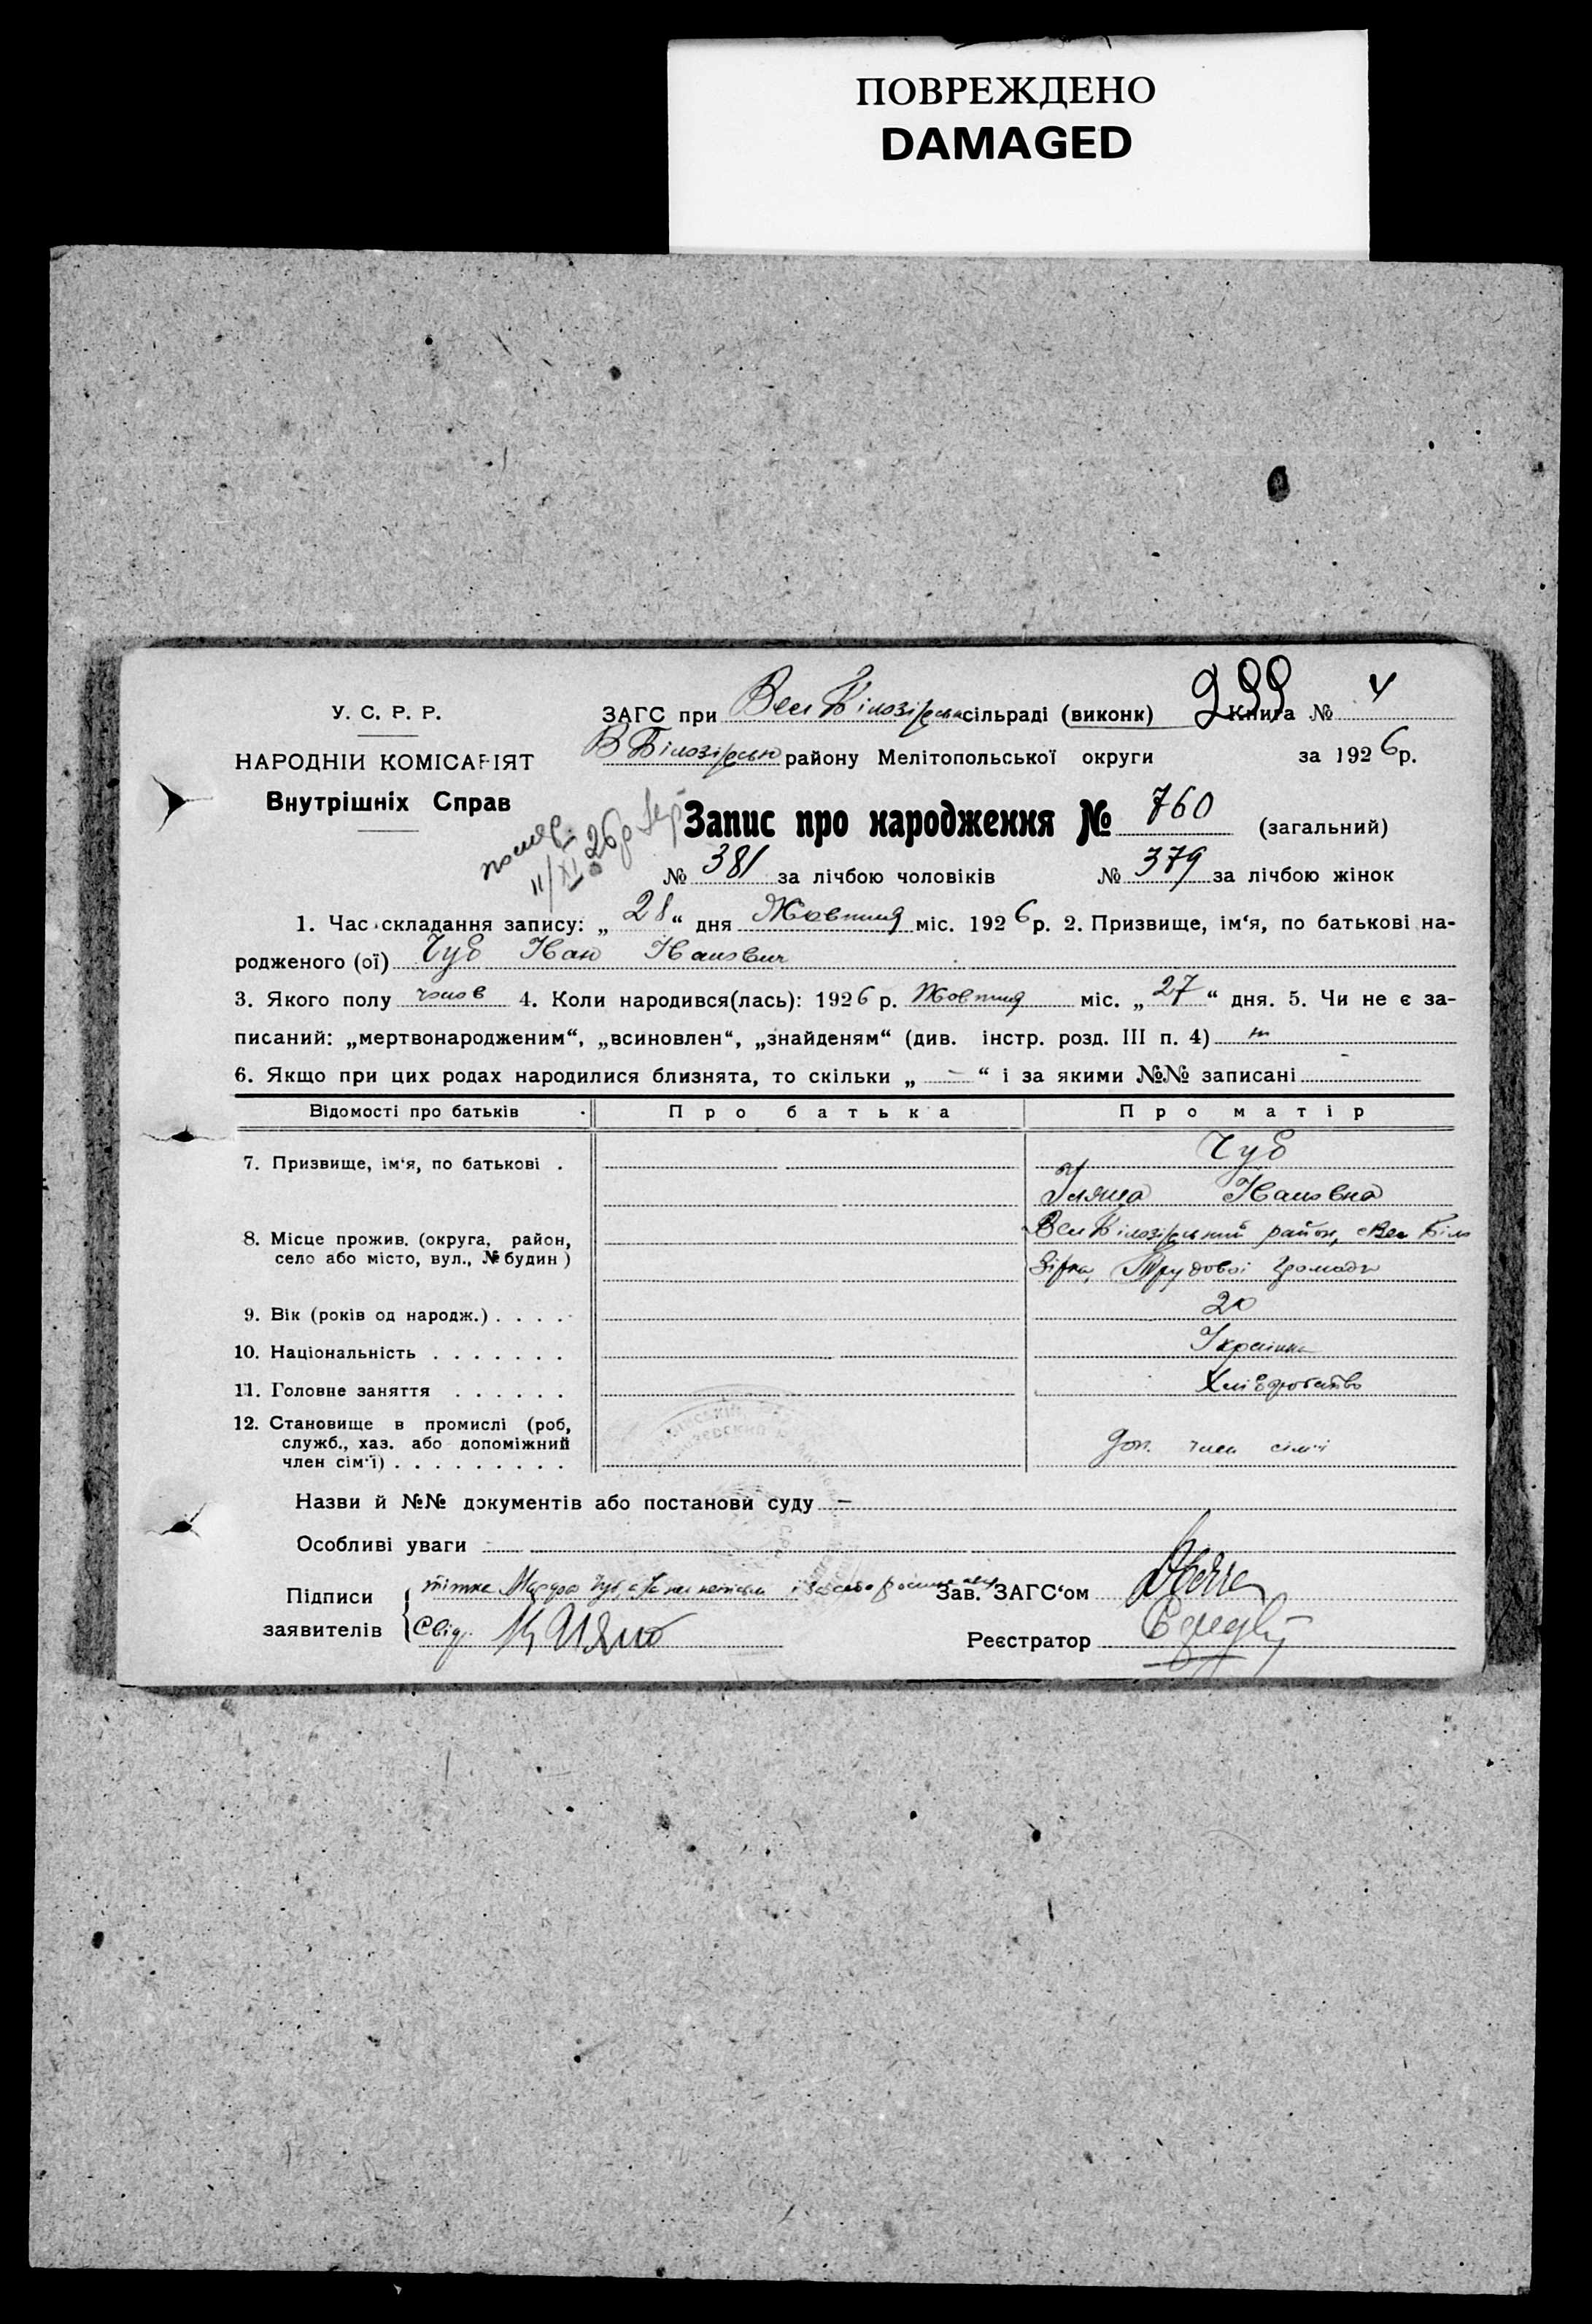 ПОВРЕЖДЕНО
DAMAGED
У. С. Р. Р.
НАРОДНІЙ КОМІСАРІЯТ
Внутрішніх Справ
ЗАГС при Вел Білозірськ сільраді (виконк) Книга № 4
В Білозірськ району Мелітопольської округи за 1926 р.
Запис про народження № 760 (загальний)
11/XI 26р
№ 381 за лічбою чоловіків № 379 за лічбою жінок
1. Час складання запису: „28“ дня Жовтня міс. 1926 р. 2. Призвище, ім‘я, по батькові на-
родженого (ої) Чуб Іван Іванович
3. Якого полу чолов 4. Коли народився(лась): 1926 р. Жовтня міс. „27“ дня. 5. Чи не є за-
писаний: „мертвонародженим“, „всиновлен“, „знайденям“ (див. інстр. розд. III п. 4)
6. Якщо при цих родах народилися близнята, то скільки „ — “ і за якими №№ записані
Відомості про батьків Про батька Про матір
7. Призвище, ім‘я, по батькові . Чуб
Уляна Івановна
8. Місце прожив. (округа, район,
село або місто, вул., № будин) Вел Білозірський район, с Вел Біло
зірка, Трудової Громади
9. Вік (років од народж.) . . . . 20
10. Національність . . . . . . . Українка
11. Головне заняття . . . . . . Хліборобство
12. Становище в промислі (роб,
служб., хаз. або допоміжний
член сім‘ї) . . . . . . . . . Доп. член сім‘ї
Назви й №№ документів або постанови суду —
Особливі уваги —
Підписи
заявителів
тітка Чуб
Свід.
Зав. ЗАГС‘ом
Реєстратор